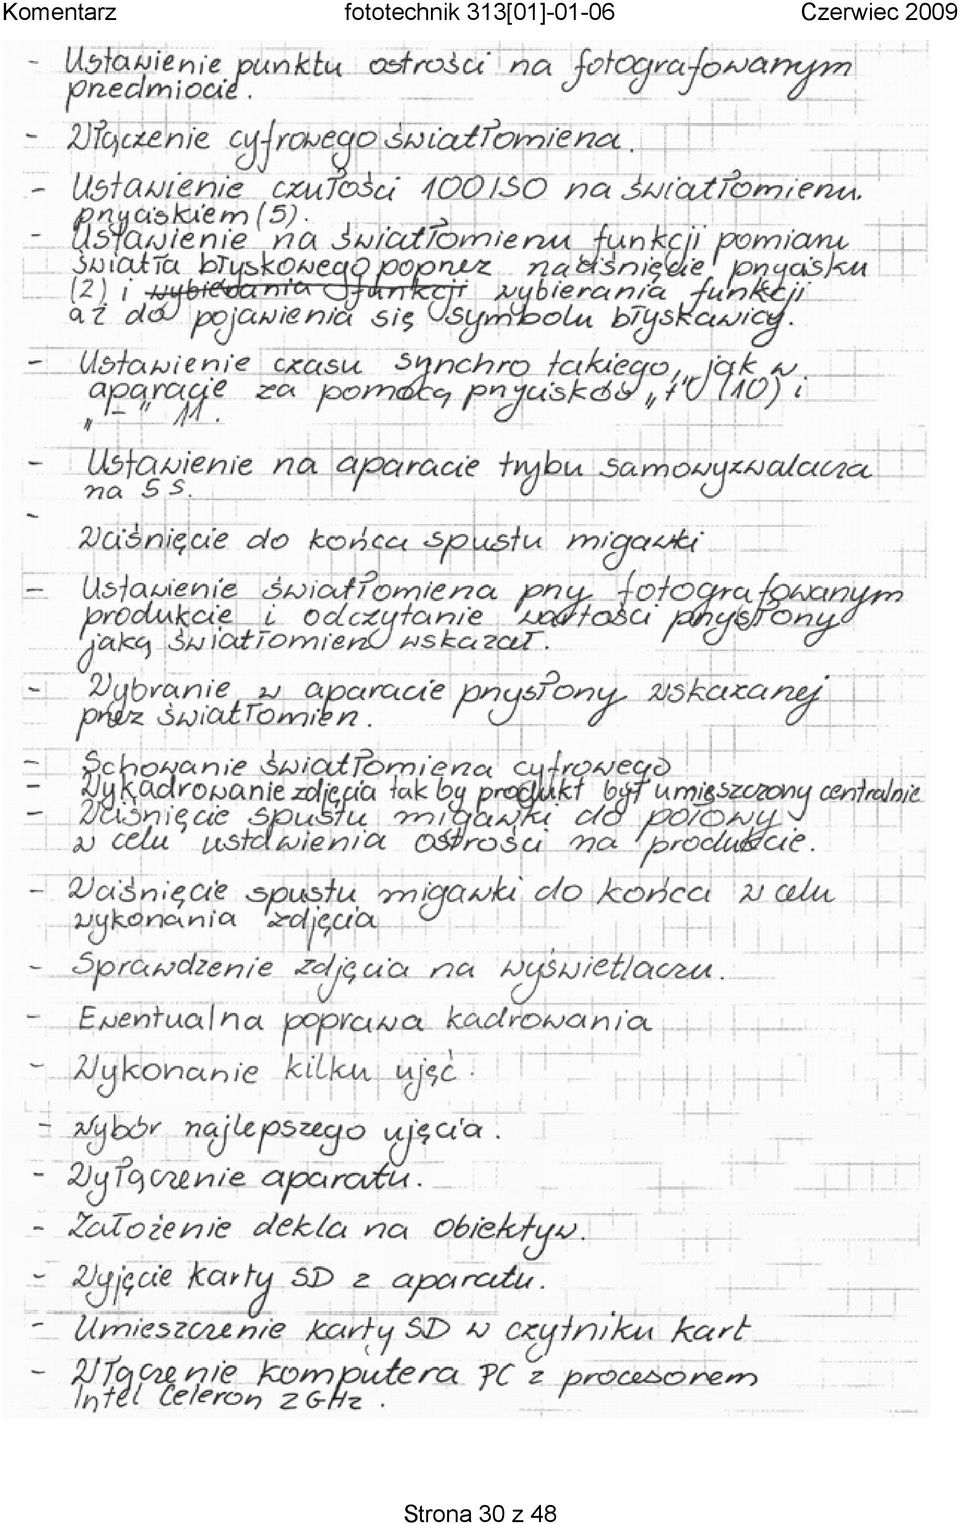 Komentarz fototechnik 313[01]-01-06 Czerwiec 2009
- Ustawienie punktu ostrości na fotografowanym
przedmiocie.
- Włączenie cyfrowego światłomierza.
- Ustawienie czułości 100 ISO na światłomierzu.
przyciskiem (5).
- Ustawienie na światłomierzu funkcji pomiaru
światła błyskowego poprzez naciśnięcie przycisku
(2) i wybierania funkcji wybierania funkcji
aż do pojawienia się symbolu błyskawicy.
- Ustawienie czasu synchro takiego, jak w
aparacie za pomocą przycisków „+" (10) i
„-" 11.
- Ustawienie na aparacie trybu samowyzwalacza
na 5 s.
-
Wciśnięcie do końca spustu migawki
- Ustawienie światłomierza przy fotografowanym
produkcie i odczytanie wartości przysłony
jaką światłomierz wskazał.
- Wybranie w aparacie przysłony wskazanej
przez światłomierz.
- Schowanie światłomierza cyfrowego
- Wykadrowanie zdjęcia tak by produkt był umieszczony centralnie
- Wciśnięcie spustu migawki do połowy
w celu ustawienia ostrości na produkcie.
- Wciśnięcie spustu migawki do końca w celu
wykonania zdjęcia
- Sprawdzenie zdjęcia na wyświetlaczu.
- Ewentualna poprawa kadrowania
- Wykonanie kilku ujęć.
- Wybór najlepszego ujęcia.
- Wyłączenie aparatu.
- Założenie dekla na obiektyw.
- Wyjęcie karty SD z aparatu.
- Umieszczenie karty SD w czytniku kart
- Włączenie komputera PC z procesorem
Intel Celeron 2 GHz.
Strona 30 z 48